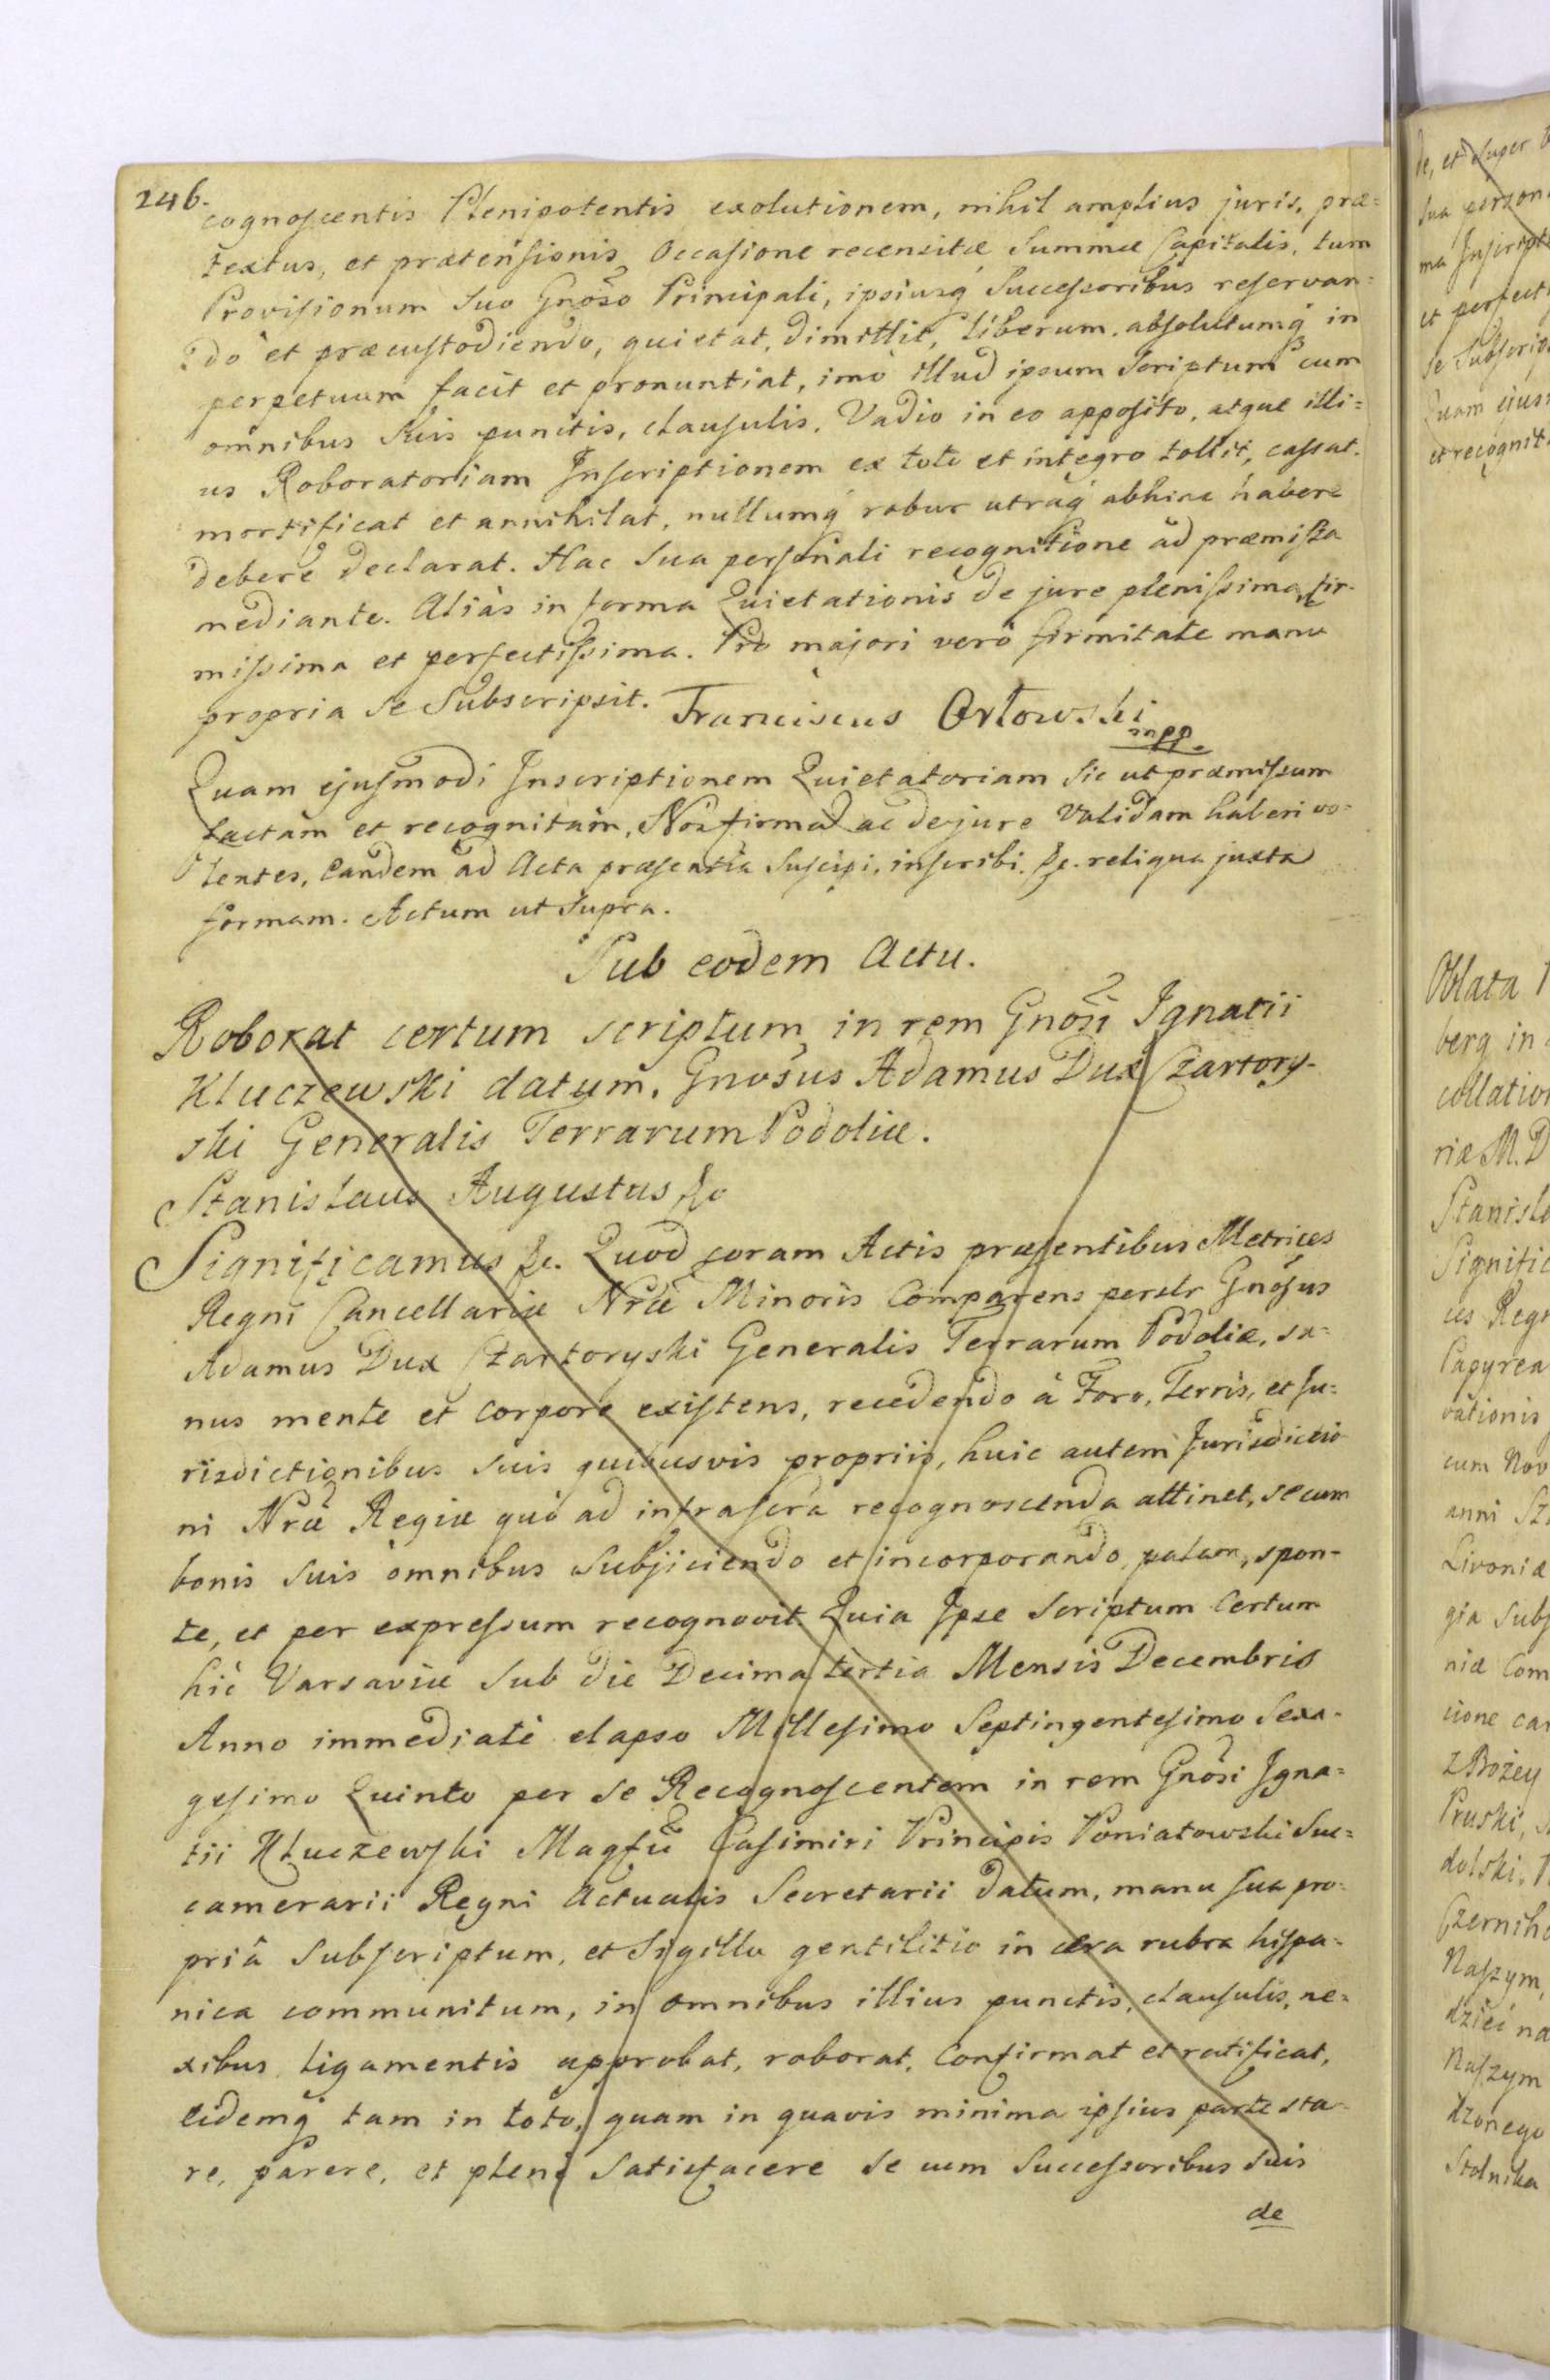 246.
cognoscentis Plenipotentis exolutionem, nihil amplius juris, præ=
textus, et prætensionis Occasione recensitæ Summæ Capitalis, tum
Provisionum Suo Gnoso Principali, ipsiusq́ Successoribus reservan=
:do et præcustodiendo, quietat, dimittit, liberum, absolutumq́ in
perpetuum facit et pronuntiat, imò illud ipsum Scriptum cum
omnibus Suis punctis, clausulis, Vadio in eo apposito, atque illi=
us Roboratoriam Inscriptionem ex toto et integro tollit, cassat,
mortificat et annihilat, nullumq́ robur utraq́ abhinc habere
debere declarat. Hac Sua personali recognitione ad præmissa
mediante. Aliàs in forma Quietationis de jure plenissima, fir-
missima et perfectissima. Pro majori verò firmitate manu
propria Se Subscripsit. Franciscus Orłowski
mpp.
Quam ejusmodi Inscriptionem Quietatoriam Sic ut præmissum
factam et recognitam, Nos firmā ac de jure Validam haberi vo=
lentes, Eandem ad Acta præsentia Suscipi, inscribi &c. reliqua juxta
formam. Actum ut Supra.
Sub eodem Actu.
Roborat certum scriptum in rem Gnosi Ignatii
Kluczewski datum, Gnosus Adamus Dux Czartory-
ski Generalis Terrarum Podoliæ.
Stanislaus Augustus &c
Significamus &c. Quod coram Actis præsentibus Metrices
Regni Cancellariæ Nræ Minoris Comparens perslr Gnosus
Adamus Dux Czartoryski Generalis Terrarum Podoliæ, sa=
nus mente et corpore existens, recedendo à Foro, Terris, et Ju=
risdictionibus Suis quibusvis propriis, huic autem Jurisdictio
ni Nræ Regiæ quò ad infrascra recognoscenda attinet, se cum
bonis Suis omnibus Subjiciendo et incorporando, palam, spon-
te, et per expressum recognovit. Quia Ipse Scriptum Certum
hic Varsaviæ Sub die Decima tertia Mensis Decembris
Anno immediatè elapso Millesimo Septingentesimo Sexa-
gesimo Quinto per Se Recognoscentem in rem Gnosi Igna=
tii Kluczewski Magfii Casimiri Principis Poniatowski Suc=
camerarii Regni Actualis Secretarii datum, manu Sua pro=
priâ Subscriptum, et Sigillo gentilitio in cera rubra hispa=
nica communitum, in omnibus illius punctis, clausulis, ne=
xibus ligamentis approbat, roborat, Confirmat et ratificat,
eidemq́ tam in toto, quam in quavis minima ipsius parte sta-
re, parere, et plene Satisfacere Se cum Successoribus Suis
de
de, et Super
Sua person
ma Inscript
et perfect
Se Subscrip
Quam ejus
et recognit
Oblata
berg in
collation
riæ M. D
Stanisla
Signific
ces Reg
Papyrea
vationis
cum Nov
anni
Livoniæ
gia Subj
niæ Com
cione ca
z Bożey
Pruski,
dolski,
Czernih
Naszym,
dzieć na
Naszym
dzonego
Stolnika